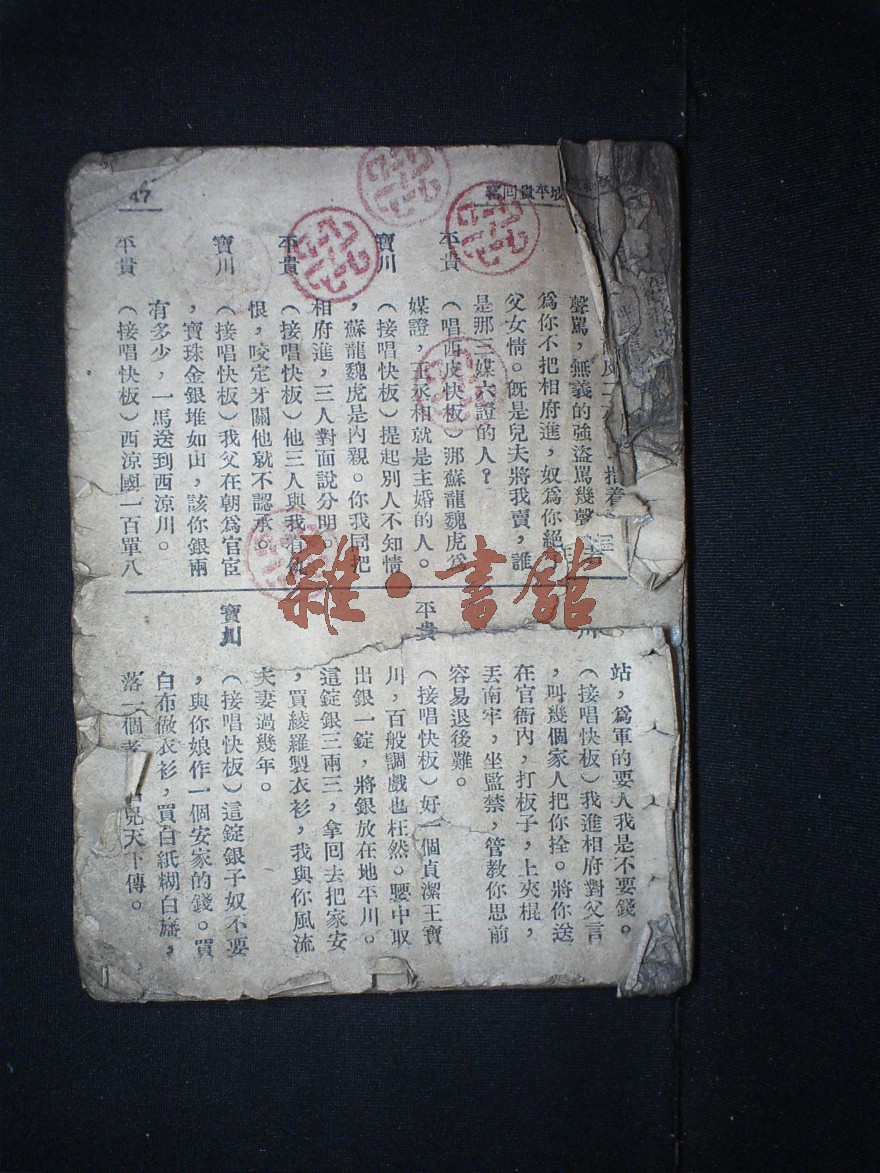 坡平貴回窰
47
指着
聲駡，無義的強盜駡幾聲
爲你不把相府進，奴爲你絕了
父女情。旣是兒夫將我賣，誰
是那三媒六證的人？
平貴 （唱西皮快板）那蘇龍魏虎爲
媒證，王丞相就是主婚的人。
寶川 （接唱快板）提起別人不知情
，蘇龍魏虎是內親。你我同把
相府進，三人對面說分明。
平貴 （接唱快板）他三人與我有仇
恨，咬定牙關他就不認承。
寶川 （接唱快板）我父在朝爲官宦
，寶珠金銀堆如山，該你銀兩
有多少，一馬送到西涼川。
平貴 （接唱快板）西涼國一百單八
站，爲軍的要人我是不要錢。
川 （接唱快板）我進相府對父言
，叫幾個家人把你拴。將你送
在官衙內，打板子，上夾棍，
丟南牢，坐監禁，管教你思前
容易退後難。
平貴 （接唱快板）好一個貞潔王寶
川，百般調戲也枉然。腰中取
出銀一錠，將銀放在地平川。
這錠銀三兩三，拿回去把家安
，買綾羅製衣衫，我與你風流
夫妻過幾年。
寶川 （接唱快板）這錠銀子奴不要
，與你娘作一個安家的錢。買
白布做衣衫，買白紙糊白旛，
落一個孝 名兒天下傳。
雜·書館